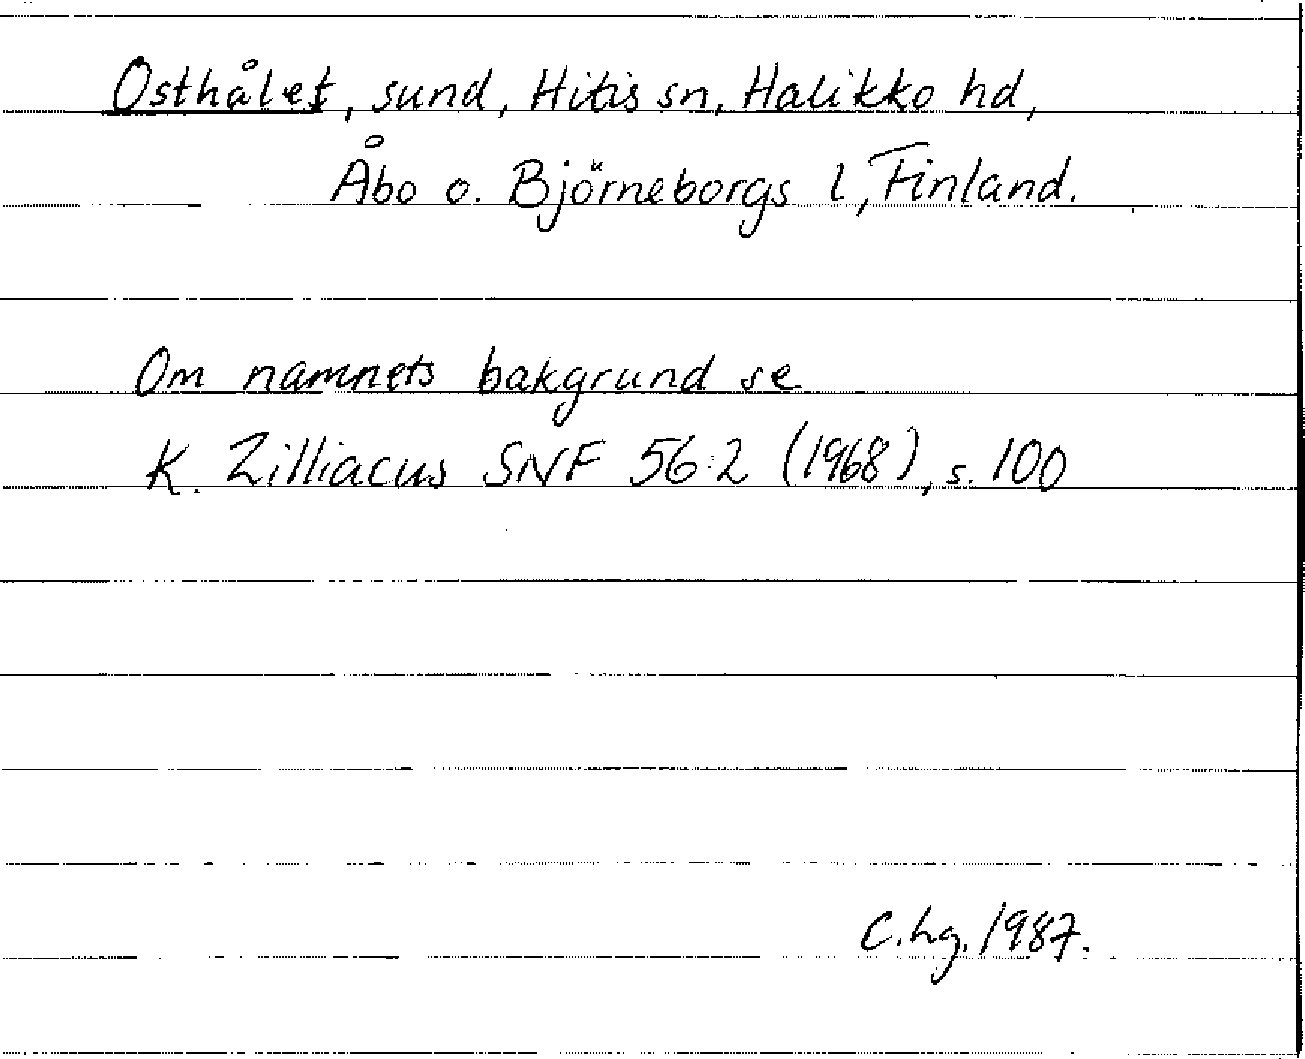 Osthålet, sund, Hitis sn, Halikko hd,
Åbo o. Björneborgs l, Finland.
Om namnets bakgrund se
K. Zilliacus SNF 56:2 (1968), s. 100
C.hg. 1987.